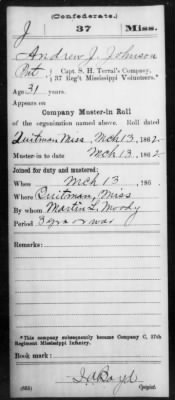 (Confederate.)
J 37 Miss.
Andrew J. Johnson
Pvt, Capt. S. H. Terral's Company,
37 Reg't Mississippi Volunteers.*
Age 31 years.
Appears on
Company Muster-in Roll
of the organization named above. Roll dated
Quitman Miss, Mch 13, 1862.
Muster-in to date Mch 13, 1862.
Joined for duty and mustered:
When Mch 13, 186 .
Where Quitman, Miss
By whom Martin L. Moody
Period 3 yrs or war
Remarks:
*This company subsequently became Company C, 37th
Regiment Mississippi Infantry.
Book mark:
Boyd
Copyist.